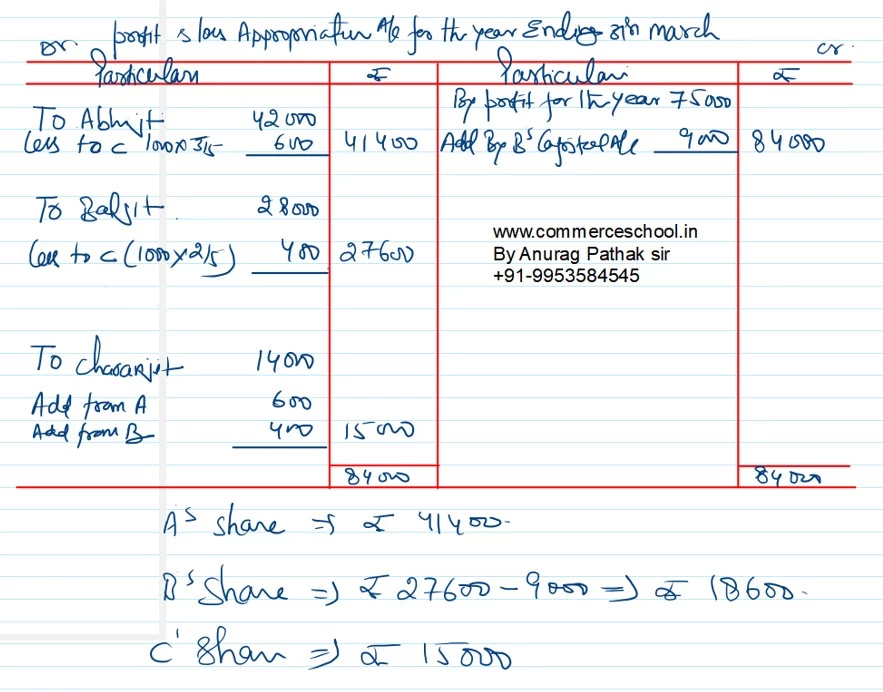 profit & loss Appropriation A/c for the year Ending 31th march
Dr. cr.
Particulars ₹ Particulars ₹
By profit for the year 75000
To Abhijt 42000
Less to C 1000 x 3/5 600 41400 Add By B's Capital A/c 9000 84000
To Baljit 28000
Less to C (1000 x 2/5) 400 27600
www.commerceschool.in
By Anurag Pathak sir
+91-9953584545
To Charanjit 14000
Add from A 600
Add from B 400 15000
84000 84000
A's share => ₹ 41400.
B's share => ₹ 27600 - 9000 => ₹ 18600.
C' Share => ₹ 15000